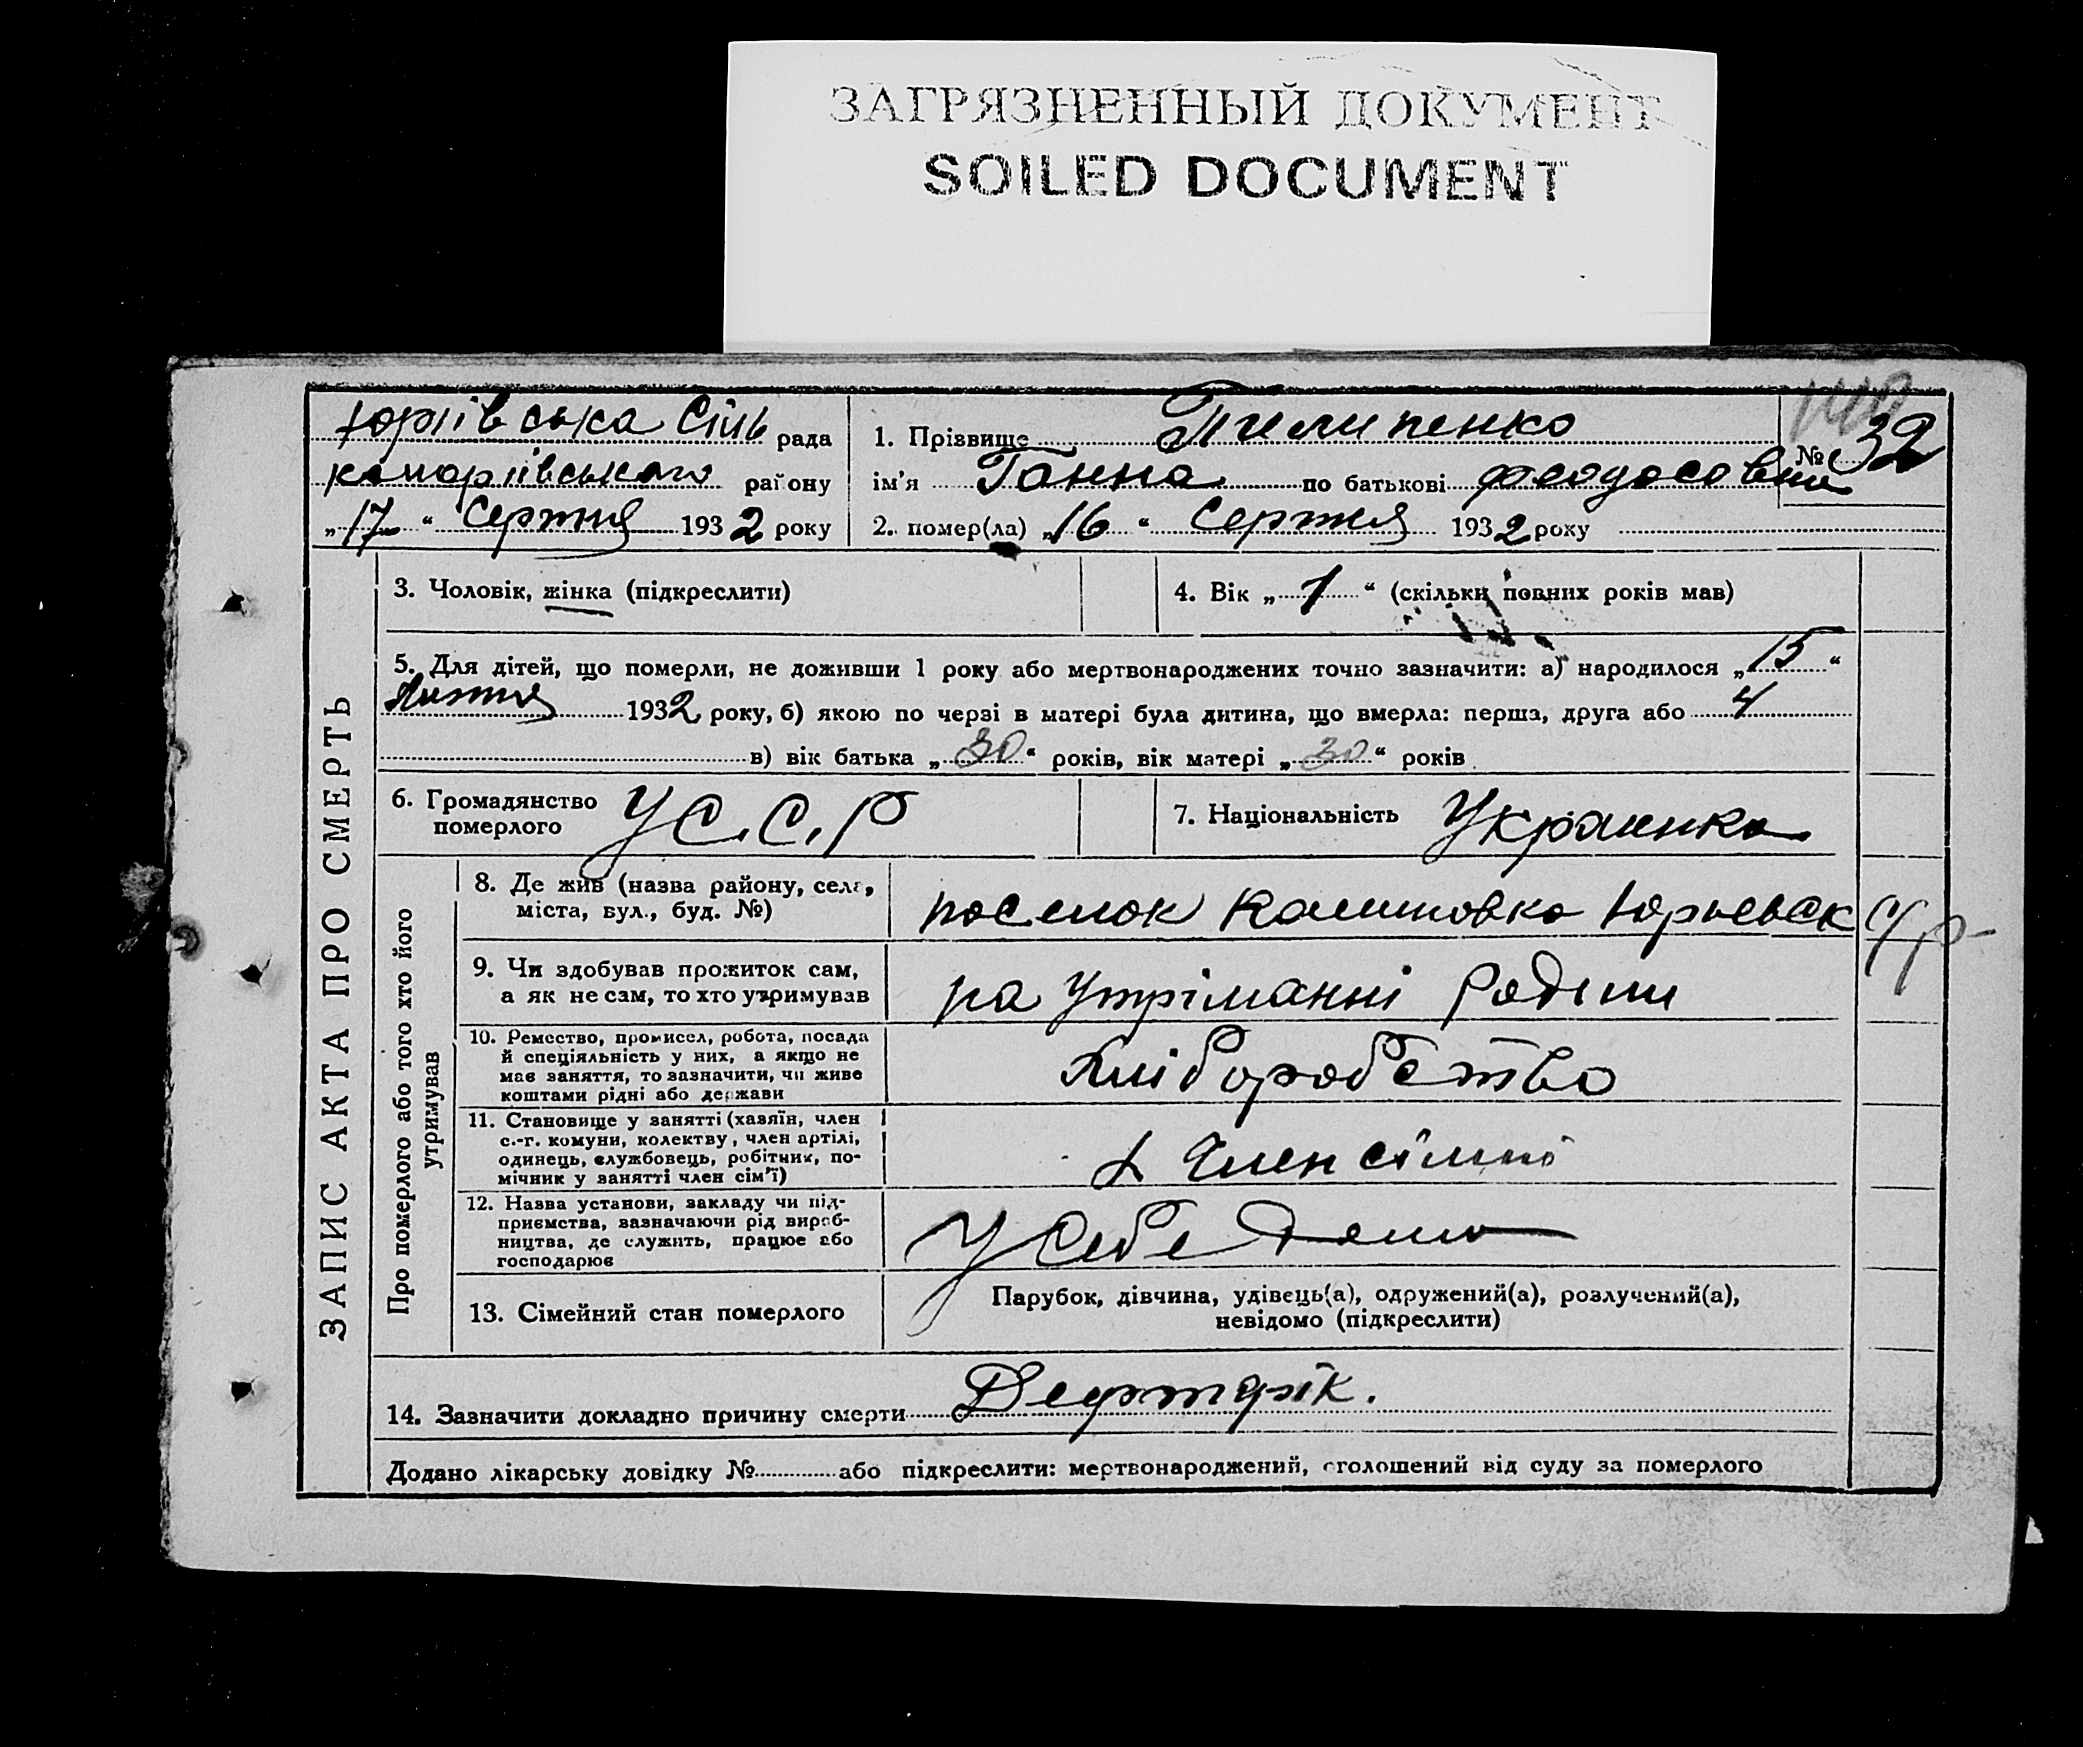 ЗАГРЯЗНЕННЫЙ ДОКУМЕНТ
SOILED DOCUMENT
Юріівська Сіль рада
комаріівського району
„17“ Серпня 1932 року
1. Прізвище Пилипенко
№ 32
ім'я Ганна по батькові феодосовна
2. помер(ла) „16“ Серпня 1932 року
ЗАПИС АКТА ПРО СМЕРТЬ
3. Чоловік, жінка (підкреслити)
4. Вік „1“ (скільки повних років мав)
5. Для дітей, що померли, не доживши 1 року або мертвонароджених точно зазначити: а) народилося „15“
Липня 1932 року, б) якою по черзі в матері була дитина, що вмерла: перша, друга або 4
в) вік батька „30“ років, вік матері „30“ років
6. Громадянство
померлого
У С. С. Р
7. Національність Украинка
Про померлого або того хто його
утримував
8. Де жив (назва району, села,
міста, вул., буд. №)
поселок Калиновка Юрьевск с/р
9. Чи здобував прожиток сам,
а як не сам, то хто утримував
на утріманні Родини
10. Ремество, промисел, робота, посада
й спеціяльність у них, а якщо не
має заняття, то зазначити, чи живе
коштами рідні або держави
Хліборобство
11. Становище у занятті (хазяїн, член
с.-г. комуни, колектву, член артілі,
одинець, службовець, робітник, по-
мічник у занятті член сім'ї)
Член сімиі
12. Назва установи, закладу чи під-
приємства, зазначаючи рід вироб-
ництва, де служить, працює або
господарює
У Себе дома
13. Сімейний стан померлого
Парубок, дівчина, удівець(а), одружений(а), розлучений(а),
невідомо (підкреслити)
14. Зазначити докладно причину смерти Дефтерік.
Додано лікарську довідку № або підкреслити: мертвонароджений, оголошений від суду за померлого